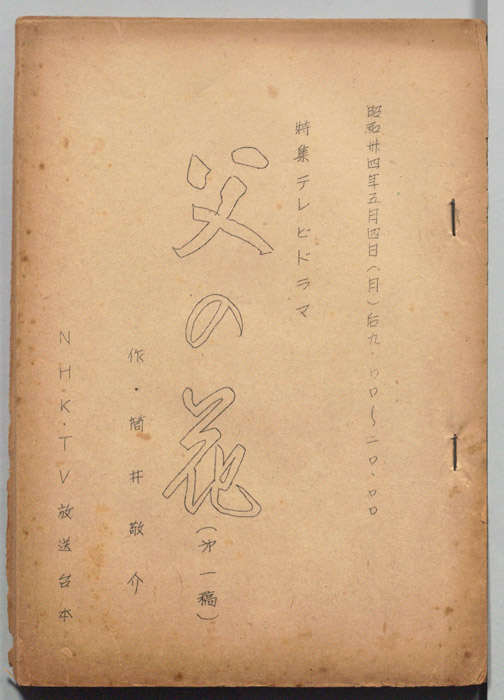 昭和卅四年五月四日（月）后九・〇〇～一〇・〇〇
特集テレビドラマ
父の花
（㐧一稿）
作・筒井敬介
N・H・K・TV放送台本